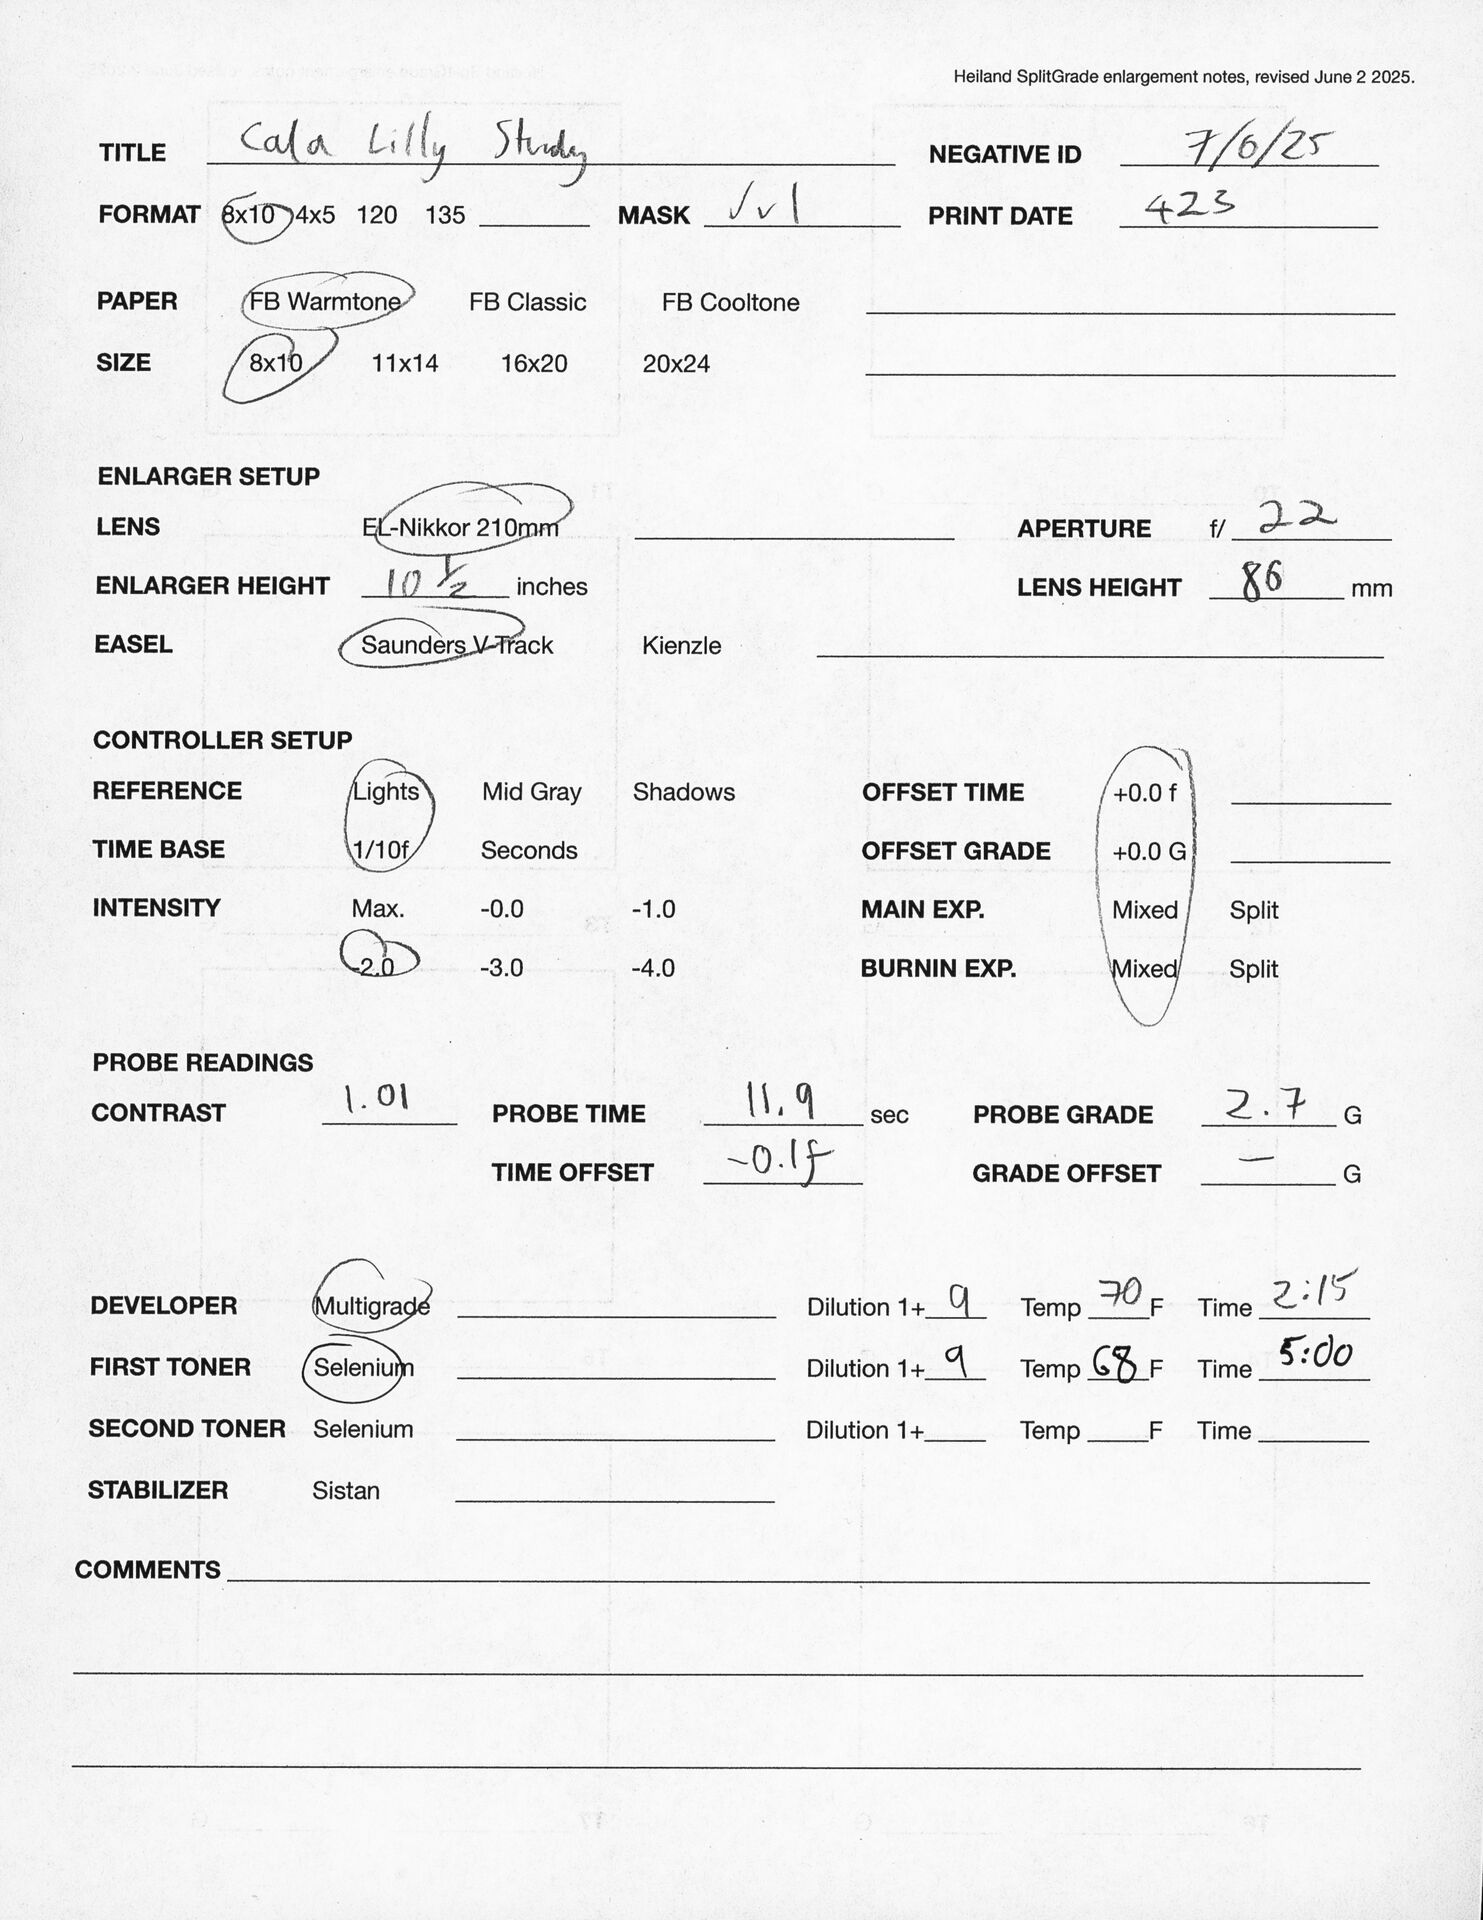 Heiland SplitGrade enlargement notes, revised June 2 2025.
TITLE Cala Lilly Study NEGATIVE ID 7/6/25
FORMAT 8x10 4x5 120 135 MASK PRINT DATE 423
PAPER FB Warmtone FB Classic FB Cooltone
SIZE 8x10 11x14 16x20 20x24
ENLARGER SETUP
LENS EL-Nikkor 210mm APERTURE f/ 22
ENLARGER HEIGHT 10 1/2 inches LENS HEIGHT 86 mm
EASEL Saunders V-Track Kienzle
CONTROLLER SETUP
REFERENCE Lights Mid Gray Shadows OFFSET TIME +0.0 f
TIME BASE 1/10f Seconds OFFSET GRADE +0.0 G
INTENSITY Max. -0.0 -1.0 MAIN EXP. Mixed Split
-2.0 -3.0 -4.0 BURNIN EXP. Mixed Split
PROBE READINGS
CONTRAST 1.01 PROBE TIME 11.9 sec PROBE GRADE 2.7 G
TIME OFFSET -0.1f GRADE OFFSET — G
DEVELOPER Multigrade Dilution 1+ 9 Temp 70 F Time 2:15
FIRST TONER Selenium Dilution 1+ 9 Temp 68 F Time 5:00
SECOND TONER Selenium Dilution 1+ Temp F Time
STABILIZER Sistan
COMMENTS